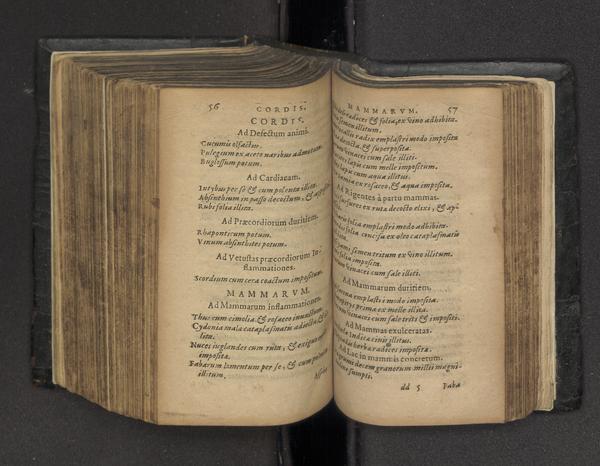 56
CORDIS.
CORDIS.
Ad Defectum animi.
Cucumis olfactus.
Pulegium ex aceto naribus admotum.
Buglossum potum.
Ad Cardiacam.
Intybus per se & cum polenta illita.
Absinthium in passo decoctum, &
Rubi folia illita.
Ad Præcordiorum duritiem.
Rhaponticum potum.
Vinum absinthites potum.
Ad Vetustas præcordiorum In-
flammationes.
Scordium cum cera coactum impositum.
MAMMARVM.
Ad Mammarum inflammationem.
Thus cum cimolia & rosaceo inunctum.
Cydonia mala cataplasmatis adiecta &
lita.
Nuces iuglandes cum ruta, & exiguo
imposita.
Fabarum lomentum per se, & cum polenta
illitum.
MAMMARVM. 57
radices & folia, ex vino adhibita.
semen illitum.
radix emplastri modo imposita
decocta, & superposita.
vinacei cum sale illiti.
lapis cum melle impositum.
lapis cum aqua illitus.
ex rosaceo, & aqua imposita.
Ad Rigentes à partu mammas.
furfures ex ruta decocto elixi, & api
folia emplastri modo adhibita.
folia concisa ex oleo cataplasmatis
semen tritum ex vino illitum.
folia imposita.
vinacei cum sale illiti.
Ad Mammarum duritiem.
emplastri modo imposita.
prima ex melle illita.
vinacei cum sale triti & impositi.
Ad Mammas exulceratas.
Indica cinis illitus.
barba radices imposita.
Ad Lac in mammis concretum.
decem granorum millii magni-
sumpti.
dd 5 Faba